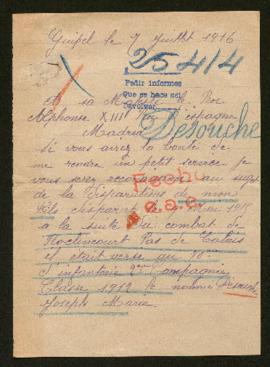 Guipel le 7 Juillet 1916
25414
Pedir informes
que se hace así
A sa Majesté le Roi
Alphonse XIII Roi espagne
Madrid
Desouche
si vous avez la bonté de
me rendre un petit service je
vous serez reconnaissant au sujet
de la disparition de mon
fils disparu mai 1915
Hecho
a la suite du combat de
Roclincourt Pas de Calais
il était versé au 70e
d'infanterie 2em Compagnie
Classe 1912 le nommé
Joseph Marie